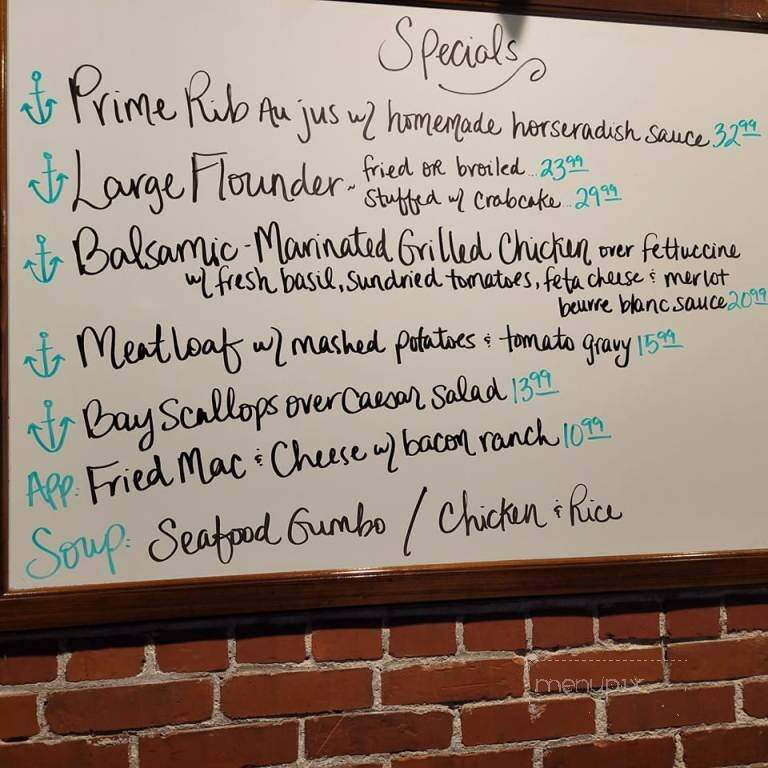 Specials
Prime Rib Au jus w/ homemade horseradish sauce 32.99
Large Flounder~ fried or broiled...23.99
stuffed w/ crabcake...29.99
Balsamic-Marinated Grilled Chicken over fettuccine
w/ fresh basil, sundried tomatoes, feta cheese & merlot
beurre blanc sauce 20.99
Meatloaf w/ mashed potatoes & tomato gravy 15.99
Bay Scallops over Caesar Salad 13.99
App: Fried Mac & Cheese w/ bacon ranch 10.99
Soup: Seafood Gumbo / Chicken & Rice
menupix